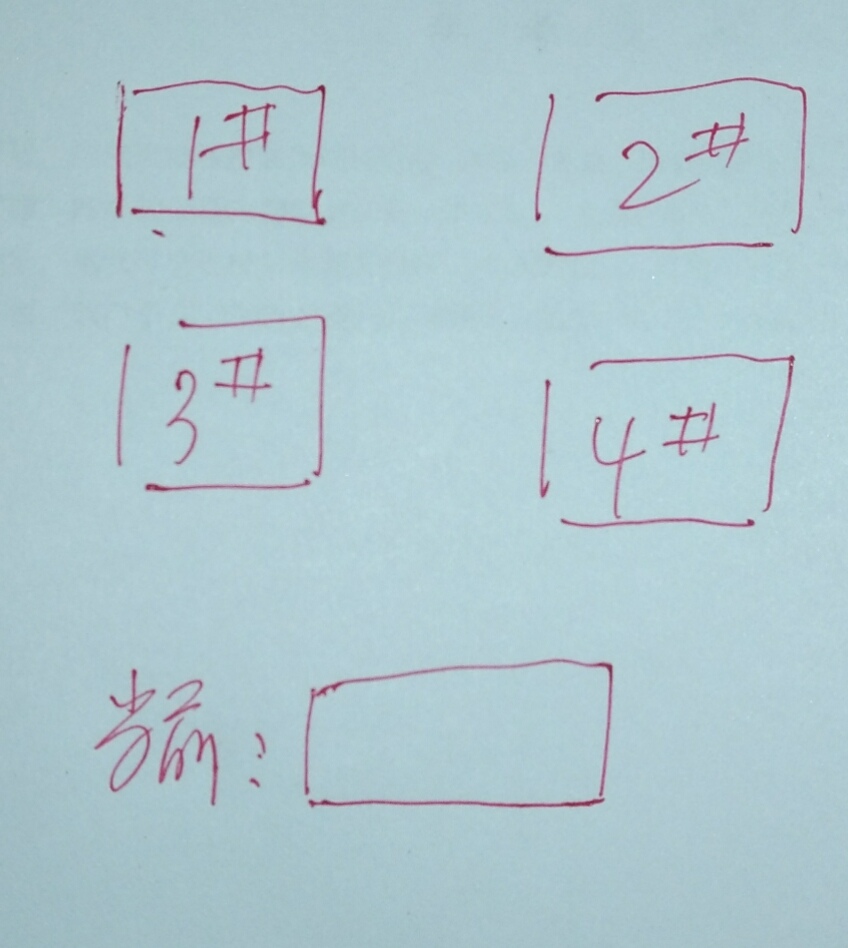 1# 2#
3# 4#
当前: